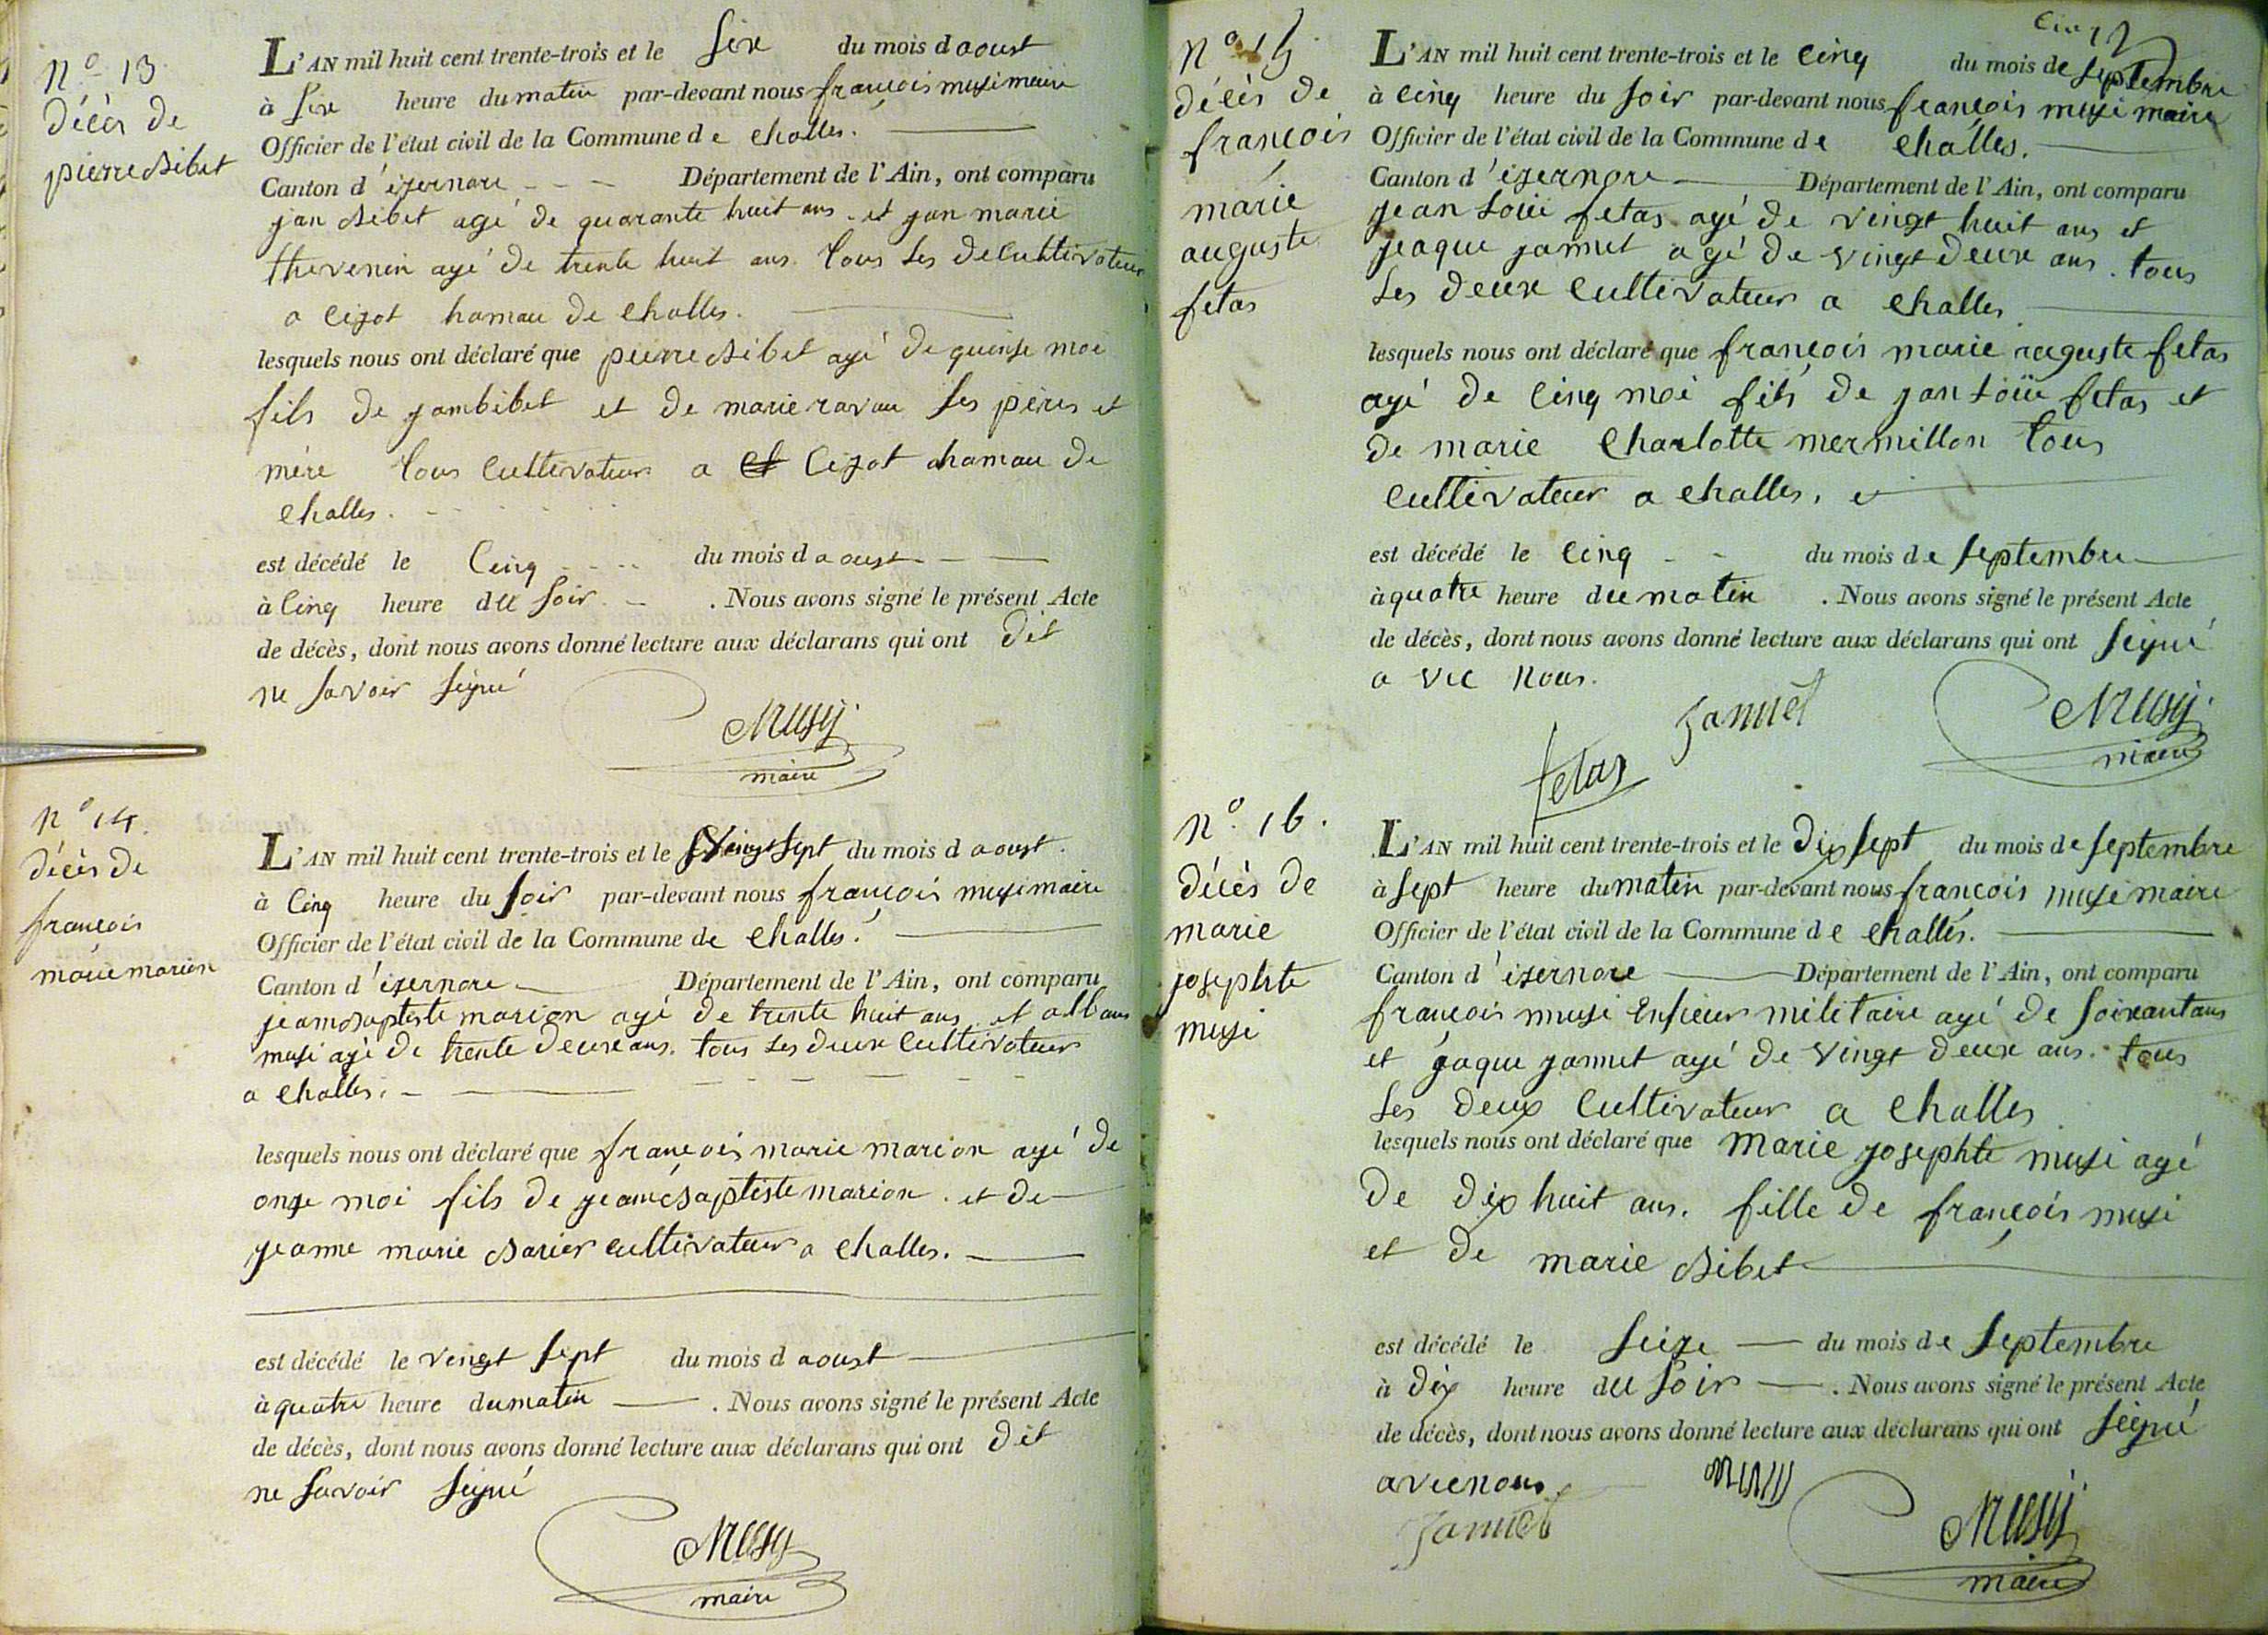 N.o 13
décès de
pierre Bibet
L'AN mil huit cent trente-trois et le six du mois d aoust
à six heure du matin par-devant nous françois musi maire
Officier de l'état civil de la Commune de challes.
Canton d'izernore - - - Département de l'Ain, ont comparu
jan Bibet agé de quarante huit ans. et jan marie
thevenin agé de trente huit ans. tous les de cultivateur
a cizot hamau de challes.
lesquels nous ont déclaré que pierre Bibet agé de quinse moi
fils de jambibet et de marie ravau ses pères et
mère tous cultivateur a et cizot hamau de
challes.
est décédé le cinq du mois d aoust
à cinq heure du soir. . Nous avons signé le présent Acte
de décès, dont nous avons donné lecture aux déclarans qui ont dit
ne savoir signé
Musy
maire
N.o 14.
décès de
françois
marie marion
L'AN mil huit cent trente-trois et le vingt sept du mois d aoust.
à cinq heure du soir par-devant nous françois musi maire
Officier de l'état civil de la Commune de challes.
Canton d'izernore Département de l'Ain, ont comparu
jeambaptiste marion agé de trente huit ans et alban
musi agé de trente deuxe ans. tous les deuxe cultivateur
a challes.
lesquels nous ont déclaré que françois marie marion agé de
onze moi fils de jeambaptiste marion. et de
jeanne marie Barier cultivateur a challes.
est décédé le vingt sept du mois d aoust
à quatre heure du matin . Nous avons signé le présent Acte
de décès, dont nous avons donné lecture aux déclarans qui ont dit
ne savoir signé
Musy
maire
N.o 15
décès de
françois
marie
auguste
fetas
cinq
L'AN mil huit cent trente-trois et le cinq du mois de septembre
à cinq heure du soir par-devant nous françois musi maire
Officier de l'état civil de la Commune de challes.
Canton d'izernore Département de l'Ain, ont comparu
jean Loüi fetas agé de vingt huit ans et
jeaque jannet agé de vingt deuxe ans. tous
les deuxe cultivateur a challes
lesquels nous ont déclaré que françois marie auguste fetas
agé de cinq moi fils de jan Loüi fetas et
de marie charlotte mermillon tous
cultivateur a challes. et
est décédé le cinq du mois de septembre
à quatre heure du matin . Nous avons signé le présent Acte
de décès, dont nous avons donné lecture aux déclarans qui ont signé
a vec nous.
fetas Jannet Musy
maire
N.o 16.
décès de
marie
josephte
musi
L'AN mil huit cent trente-trois et le dix sept du mois de septembre
à sept heure du matin par-devant nous françois musi maire
Officier de l'état civil de la Commune de challes.
Canton d'izernore Département de l'Ain, ont comparu
françois musi ensieur militaire agé de soixantans
et jaque jannet agé de vingt deuxe ans. tous
les deux cultivateur a challes
lesquels nous ont déclaré que marie josephte musi agé
de dix huit ans. fille de françois musi
et de marie Bibet
est décédé le seize du mois de septembre
à dix heure du soir . Nous avons signé le présent Acte
de décès, dont nous avons donné lecture aux déclarans qui ont signé
avec nous.
Jannet Musy
maire